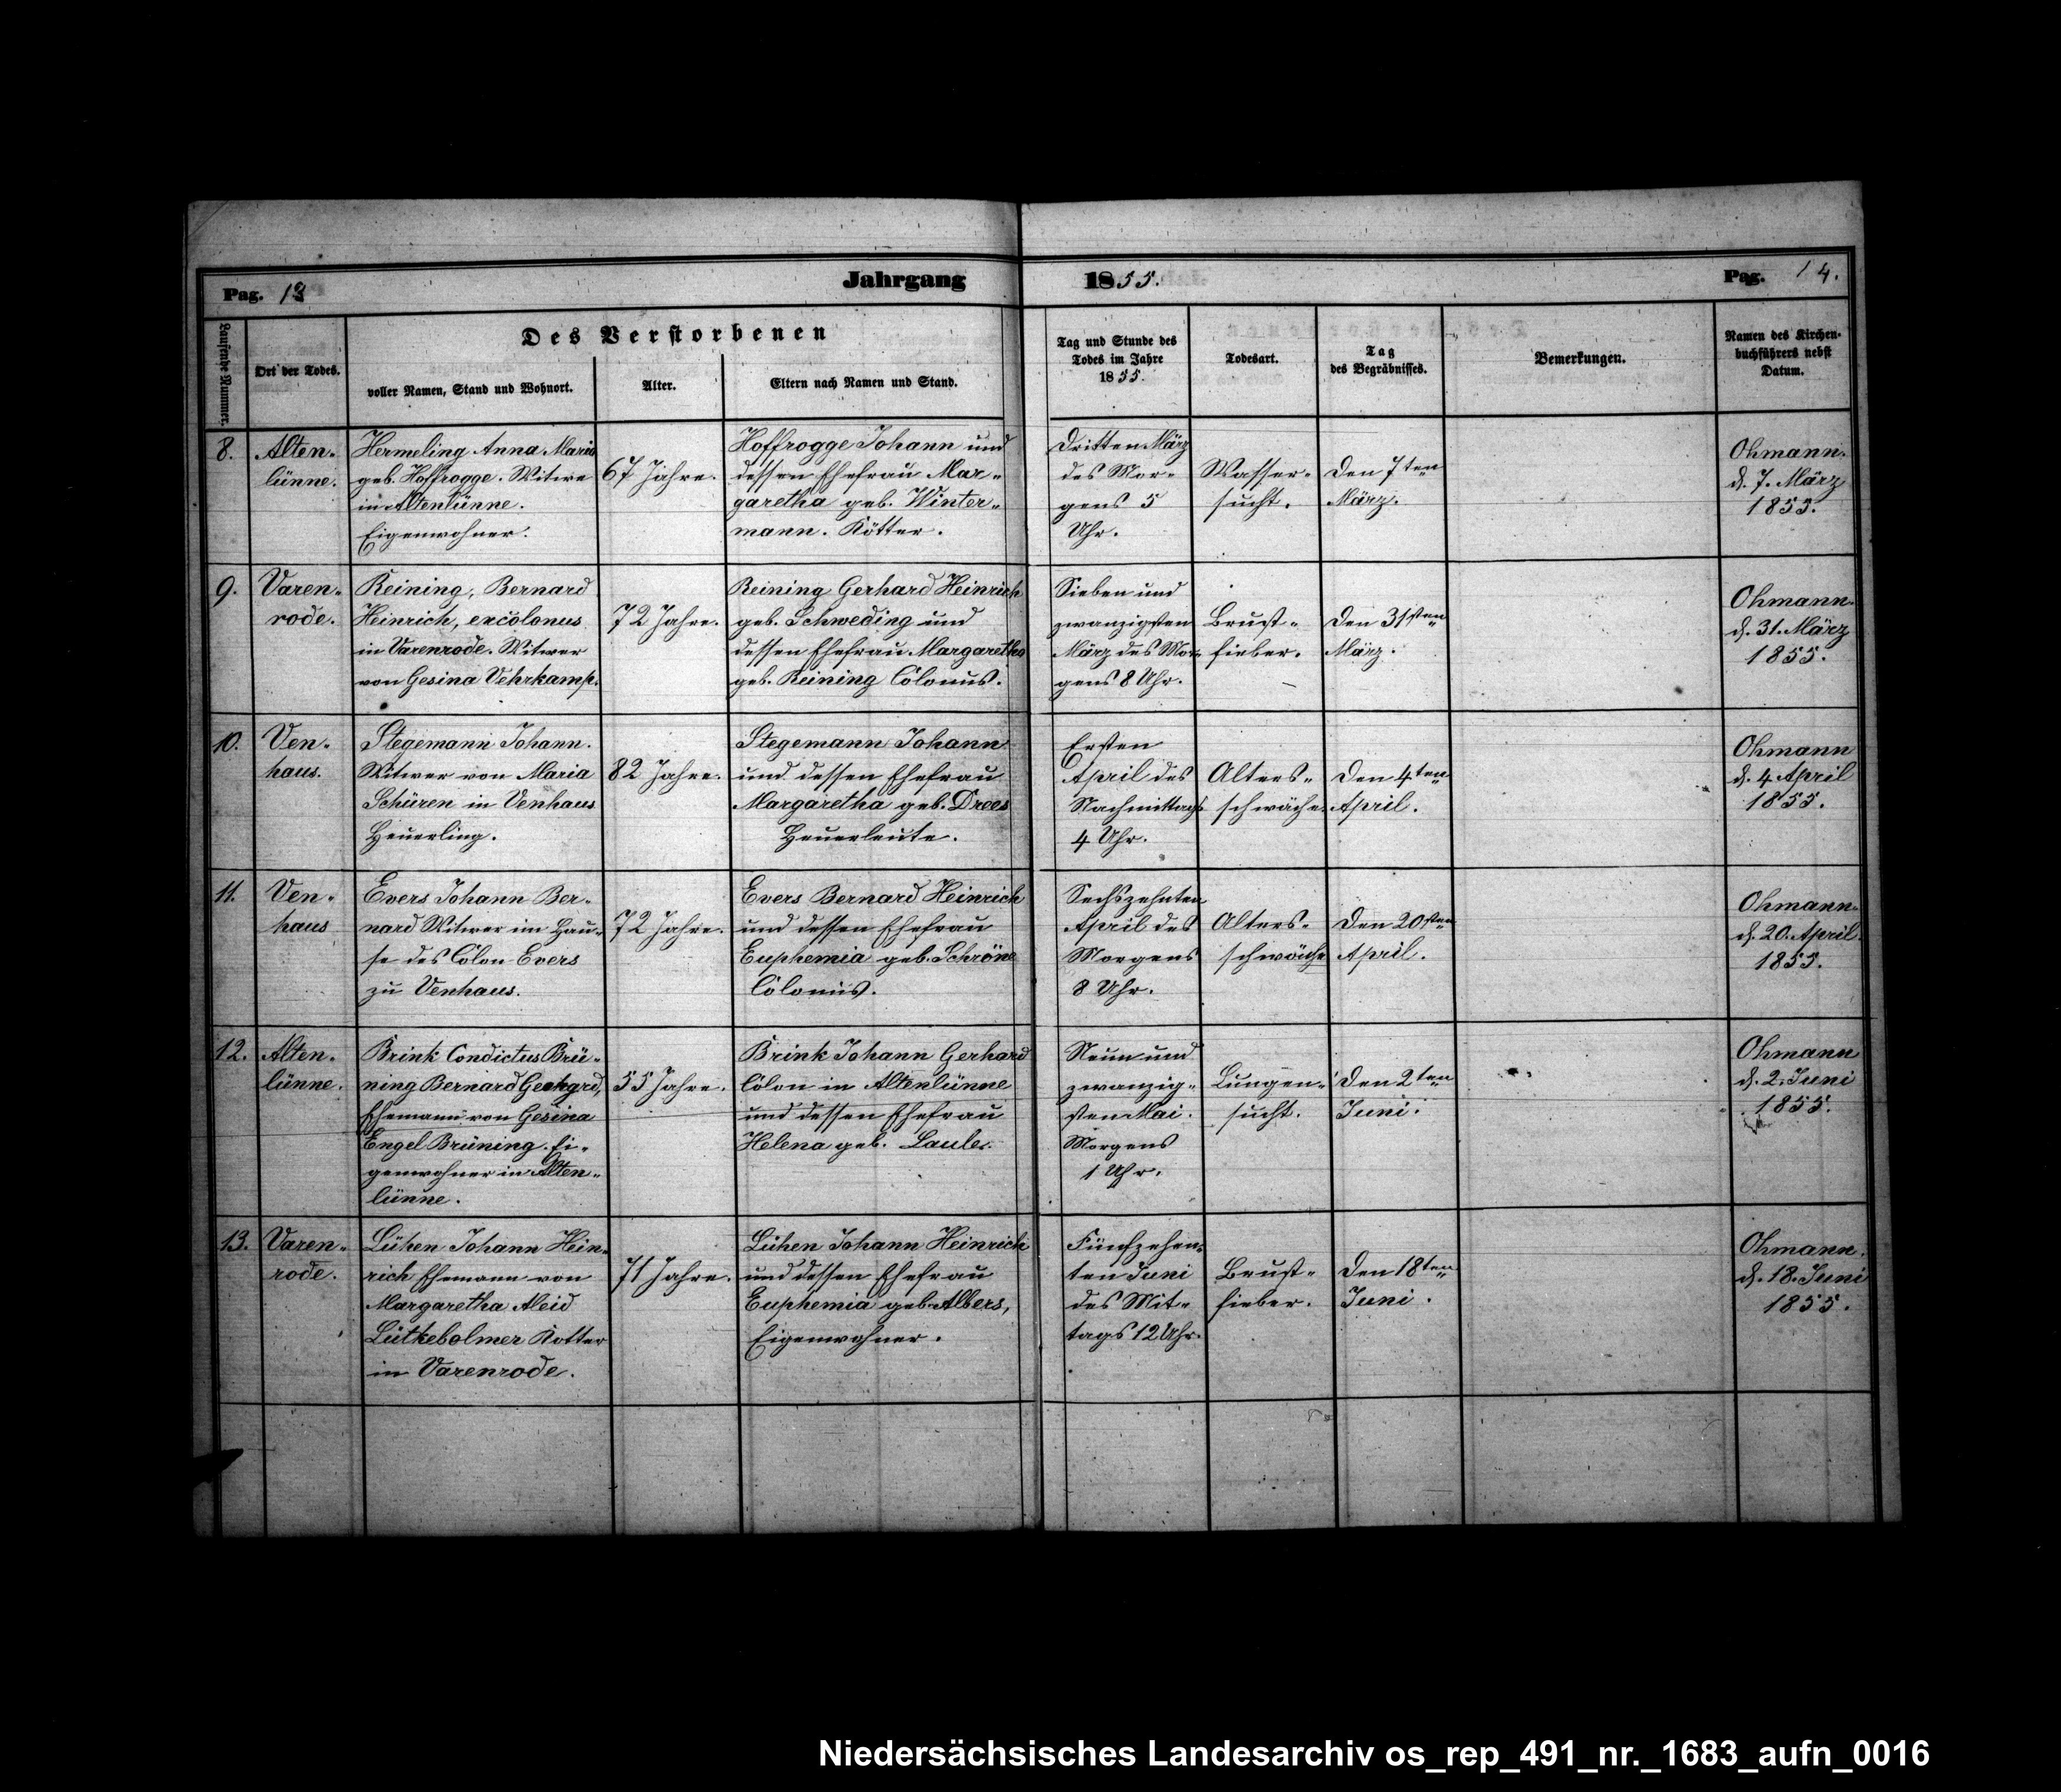 Pag. 13
Jahrgang
1855.
Pag. 14.
Laufende Nummer.
Ort der Todes.
Des Verstorbenen
voller Namen, Stand und Wohnort.
Alter.
Eltern nach Namen und Stand.
Tag und Stunde des
Todes im Jahre
1855.
Todesart.
Tag
des Begräbnisses.
Bemerkungen.
Namen des Kirchen-
buchführers nebst
Datum.
8.
Alten-
lünne.
Hermeling Anna Maria
geb. Hoffrogge. Witwe
in Altenlünne.
Eigenwohner.
67 Jahre.
Hoffrogge Johann und
dessen Ehefrau Mar-
garetha geb. Winter-
mann. Kötter.
Dritten März
des Mor-
gens 5
Uhr.
Wasser-
sucht.
Den 7ten
März.
Ohmann.
d. 7. März
1855.
9.
Varen-
rode.
Reining, Bernard
Heinrich, excolonus
in Varenrode. Witwer
von Gesina Vehrkamp.
72 Jahre.
Reining Gerhard Heinrich
geb. Schweding und
dessen Ehefrau Margaretha
geb. Reining Colonus.
Sieben und
zwanzigsten
März des Mor-
gens 8 Uhr.
Brust-
fieber.
Den 31sten
März.
Ohmann.
d. 31. März
1855.
10.
Ven-
haus.
Stegemann Johann.
Witwer von Maria
Schüren in Venhaus
Heuerling.
82 Jahre.
Stegemann Johann
und dessen Ehefrau
Margaretha geb. Drees
Heuerleute.
Ersten
April des
Nachmittags
4 Uhr.
Alters-
schwäche.
Den 4ten
April.
Ohmann
d. 4 April
1855.
11.
Ven-
haus
Evers Johann Ber-
nard Witwer im Hau-
se des Colon Evers
zu Venhaus.
72 Jahre.
Evers Bernard Heinrich
und dessen Ehefrau
Euphemia geb. Schröne
Colonus.
Sechszehnten
April des
Morgens
8 Uhr.
Alters-
schwäche
Den 20sten
April.
Ohmann.
d. 20. April.
1855.
12.
Alten-
lünne.
Brink Condictus Brü-
ning Bernard Gerhard,
Ehemann von Gesina
Engel Brüning. Ei-
genwohner in Alten-
lünne.
55 Jahre.
Brink Johann Gerhard
Colon in Altenlünne
und dessen Ehefrau
Helena geb.
Neun und
zwanzig-
sten Mai.
Morgens
1 Uhr.
Lungen-
sucht.
Den 2ten
Juni.
Ohmann
d. 2. Juni
1855.
13.
Varen-
rode.
Lühen Johann Hein-
rich Ehemann von
Margaretha Aleid
Lütkebolmer Kotter
in Varenrode.
71 Jahre.
Lühen Johann Heinrich
und dessen Ehefrau
Euphemia geb. Albers,
Eigenwohner.
Fünfzehn-
ten Juni
des Mit-
tags 12 Uhr.
Brust-
fieber.
Den 18ten
Juni.
Ohmann.
d. 18. Juni
1855.
Niedersächsisches Landesarchiv os_rep_491_nr._1683_aufn_0016